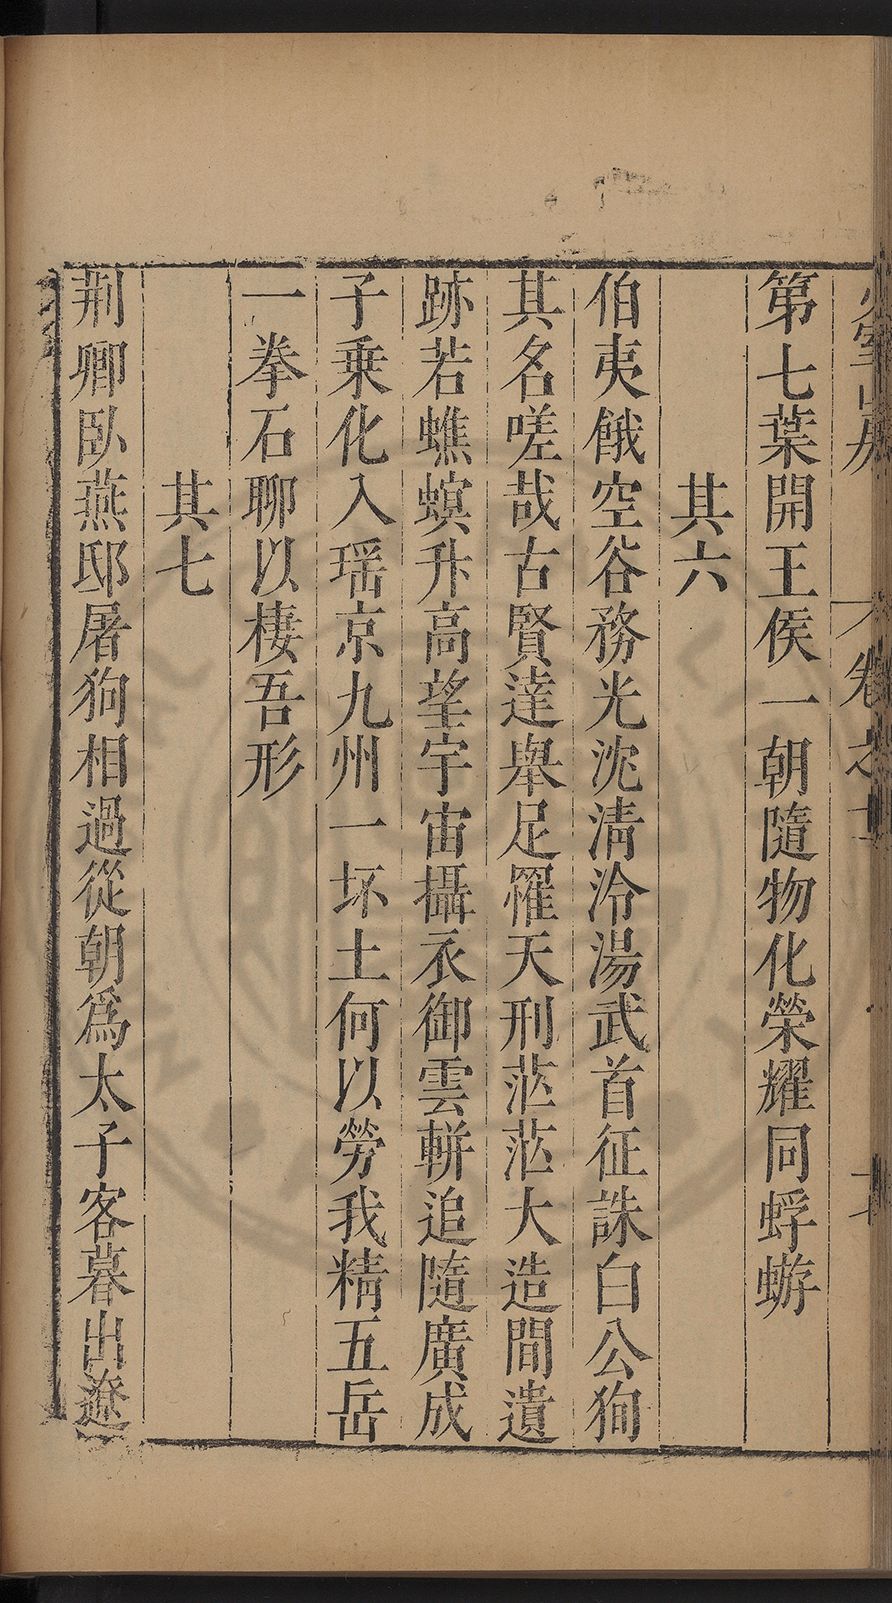 卷之十
第七葉開王侯一朝隨物化榮耀同蜉蝣
其六
伯夷餓空谷務光沈淸泠湯武首征誅白公狥
其名嗟哉古賢達舉足罹天刑茫茫大造間遺
跡若蟭螟升高望宇宙攝衣御雲軿追隨廣成
子乗化入瑶京九州一坏土何以勞我精五岳
一拳石聊以棲吾形
其七
荆卿臥燕邸屠狗相過從朝爲太子客暮出遼